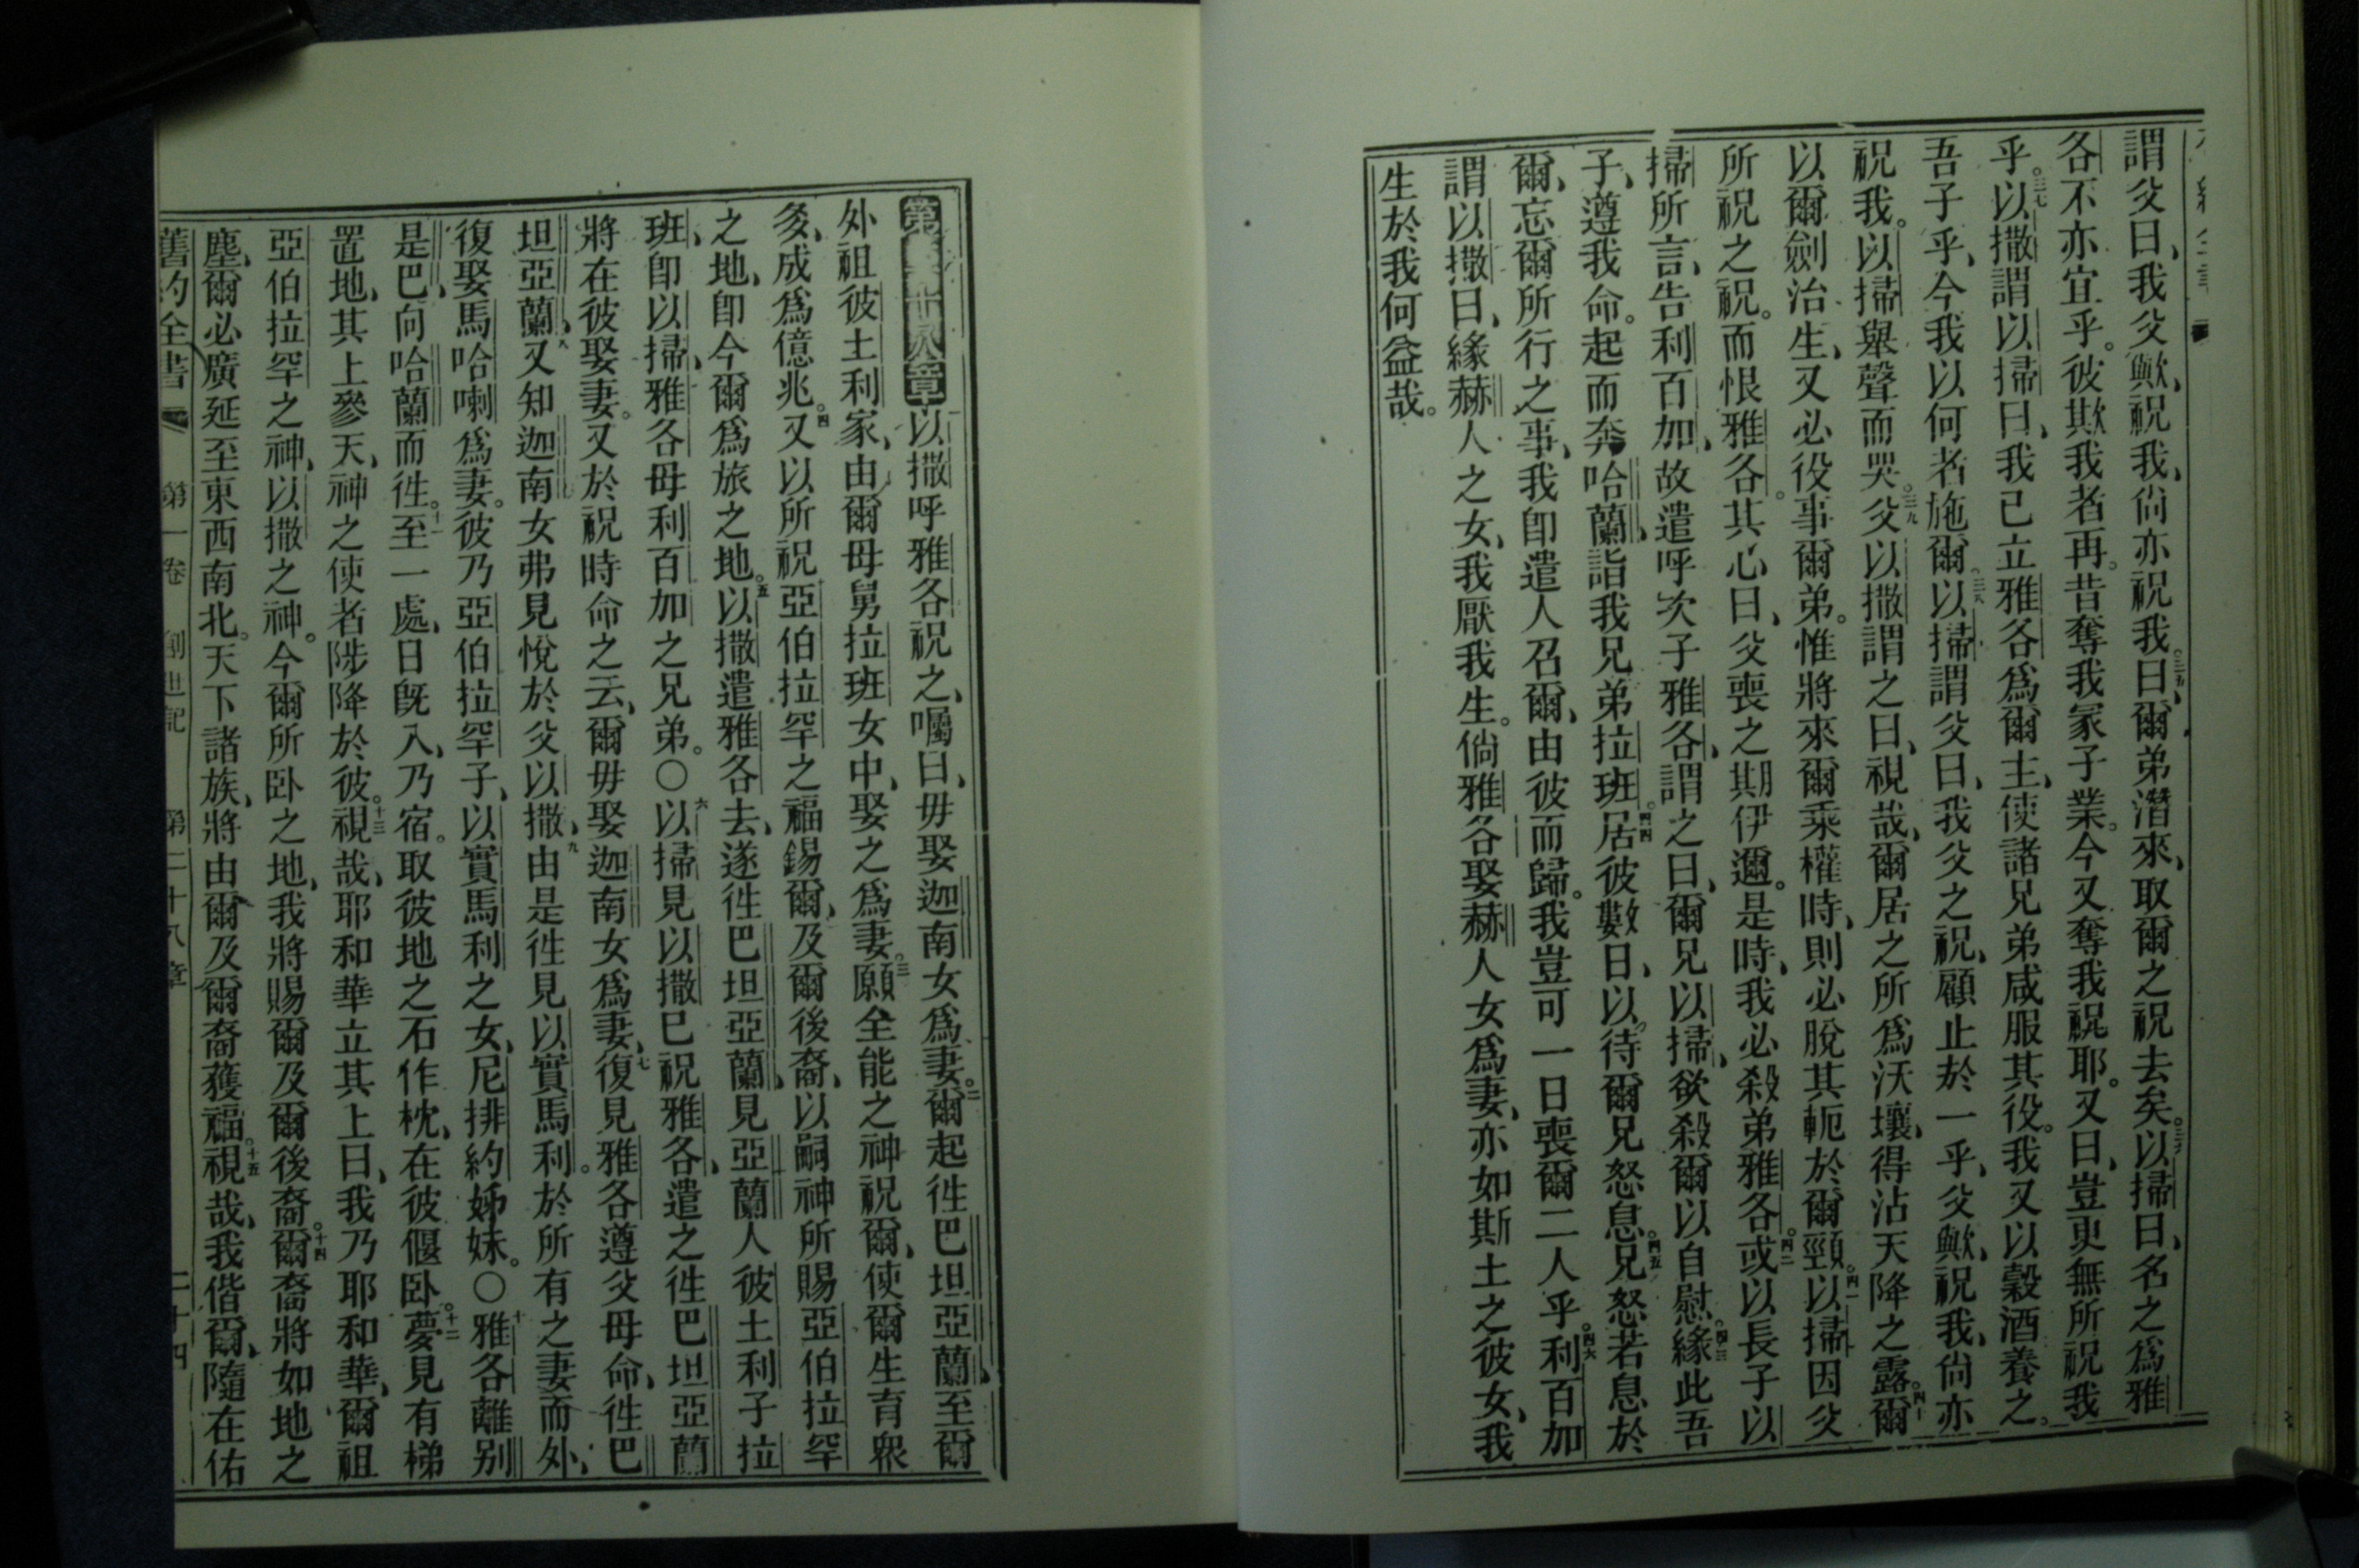 謂父曰、我父歟、祝我、尙亦祝我。三五曰、爾弟潛來、取爾之祝去矣。三六以掃曰、名之爲雅
各不亦宜乎。彼欺我者再。昔奪我冢子業。今又奪我祝耶。又曰、豈更無所祝我
乎。三七以撒謂以掃曰、我已立雅各爲爾主、使諸兄弟咸服其役。我又以穀酒養之。
吾子乎、今我以何者施爾。三八以掃謂父曰、我父之祝、顧止於一乎、父歟、祝我、尙亦
祝我。以掃舉聲而哭。三九父以撒謂之曰、視哉、爾居之所爲沃壤、得沾天降之露。四十爾
以爾劍治生、又必役事爾弟。惟將來爾乘權時、則必脫其軛於爾頸。四一以掃因父
所祝之祝。而恨雅各。其心曰、父喪之期伊邇。是時、我必殺弟雅各。四二或以長子以
掃所言、告利百加、故遣呼次子雅各、謂之曰、爾兄以掃、欲殺爾以自慰。四三緣此吾
子、遵我命。起而奔哈蘭、詣我兄弟拉班。四四居彼數日、以待爾兄怒息。四五兄怒若息於
爾、忘爾所行之事、我卽遣人召爾、由彼而歸。我豈可一日喪爾二人乎。四六利百加
謂以撒曰、緣赫人之女、我厭我生。倘雅各娶赫人女爲妻、亦如斯土之彼女、我
生於我何益哉。
第二十八章 一以撒呼雅各祝之、囑曰、毋娶迦南女爲妻。二爾起徃巴坦亞蘭、至爾
外祖彼土利家、由爾母舅拉班女中、娶之爲妻。三願全能之神祝爾、使爾生育衆
多、成爲億兆。四又以所祝亞伯拉罕之福錫爾、及爾後裔、以嗣神所賜亞伯拉罕
之地、卽今爾爲旅之地。五以撒遣雅各去、遂徃巴坦亞蘭、見亞蘭人彼土利子拉
班、卽以掃、雅各母利百加之兄弟。〇六以掃見以撒已祝雅各、遣之徃巴坦亞蘭
將在彼娶妻。又於祝時命之云、爾毋娶迦南女爲妻、七復見雅各遵父母命、徃巴
坦亞蘭、八又知迦南女弗見悅於父以撒、九由是徃見以實馬利。於所有之妻而外、
復娶馬哈喇爲妻。彼乃亞伯拉罕子、以實馬利之女、尼排約姊妹。〇十雅各離别
是巴、向哈蘭而徃。十一至一處、日旣入、乃宿。取彼地之石作枕、在彼偃卧。十二夢見有梯
置地、其上參天、神之使者陟降於彼。十三視哉、耶和華立其上曰、我乃耶和華、爾祖
亞伯拉罕之神、以撒之神。今爾所卧之地、我將賜爾及爾後裔。十四爾裔將如地之
塵、爾必廣延至東西南北。天下諸族、將由爾及爾裔獲福。十五視哉、我偕爾、隨在佑
舊約全書 第一卷 創世記 第二十八章 二十四